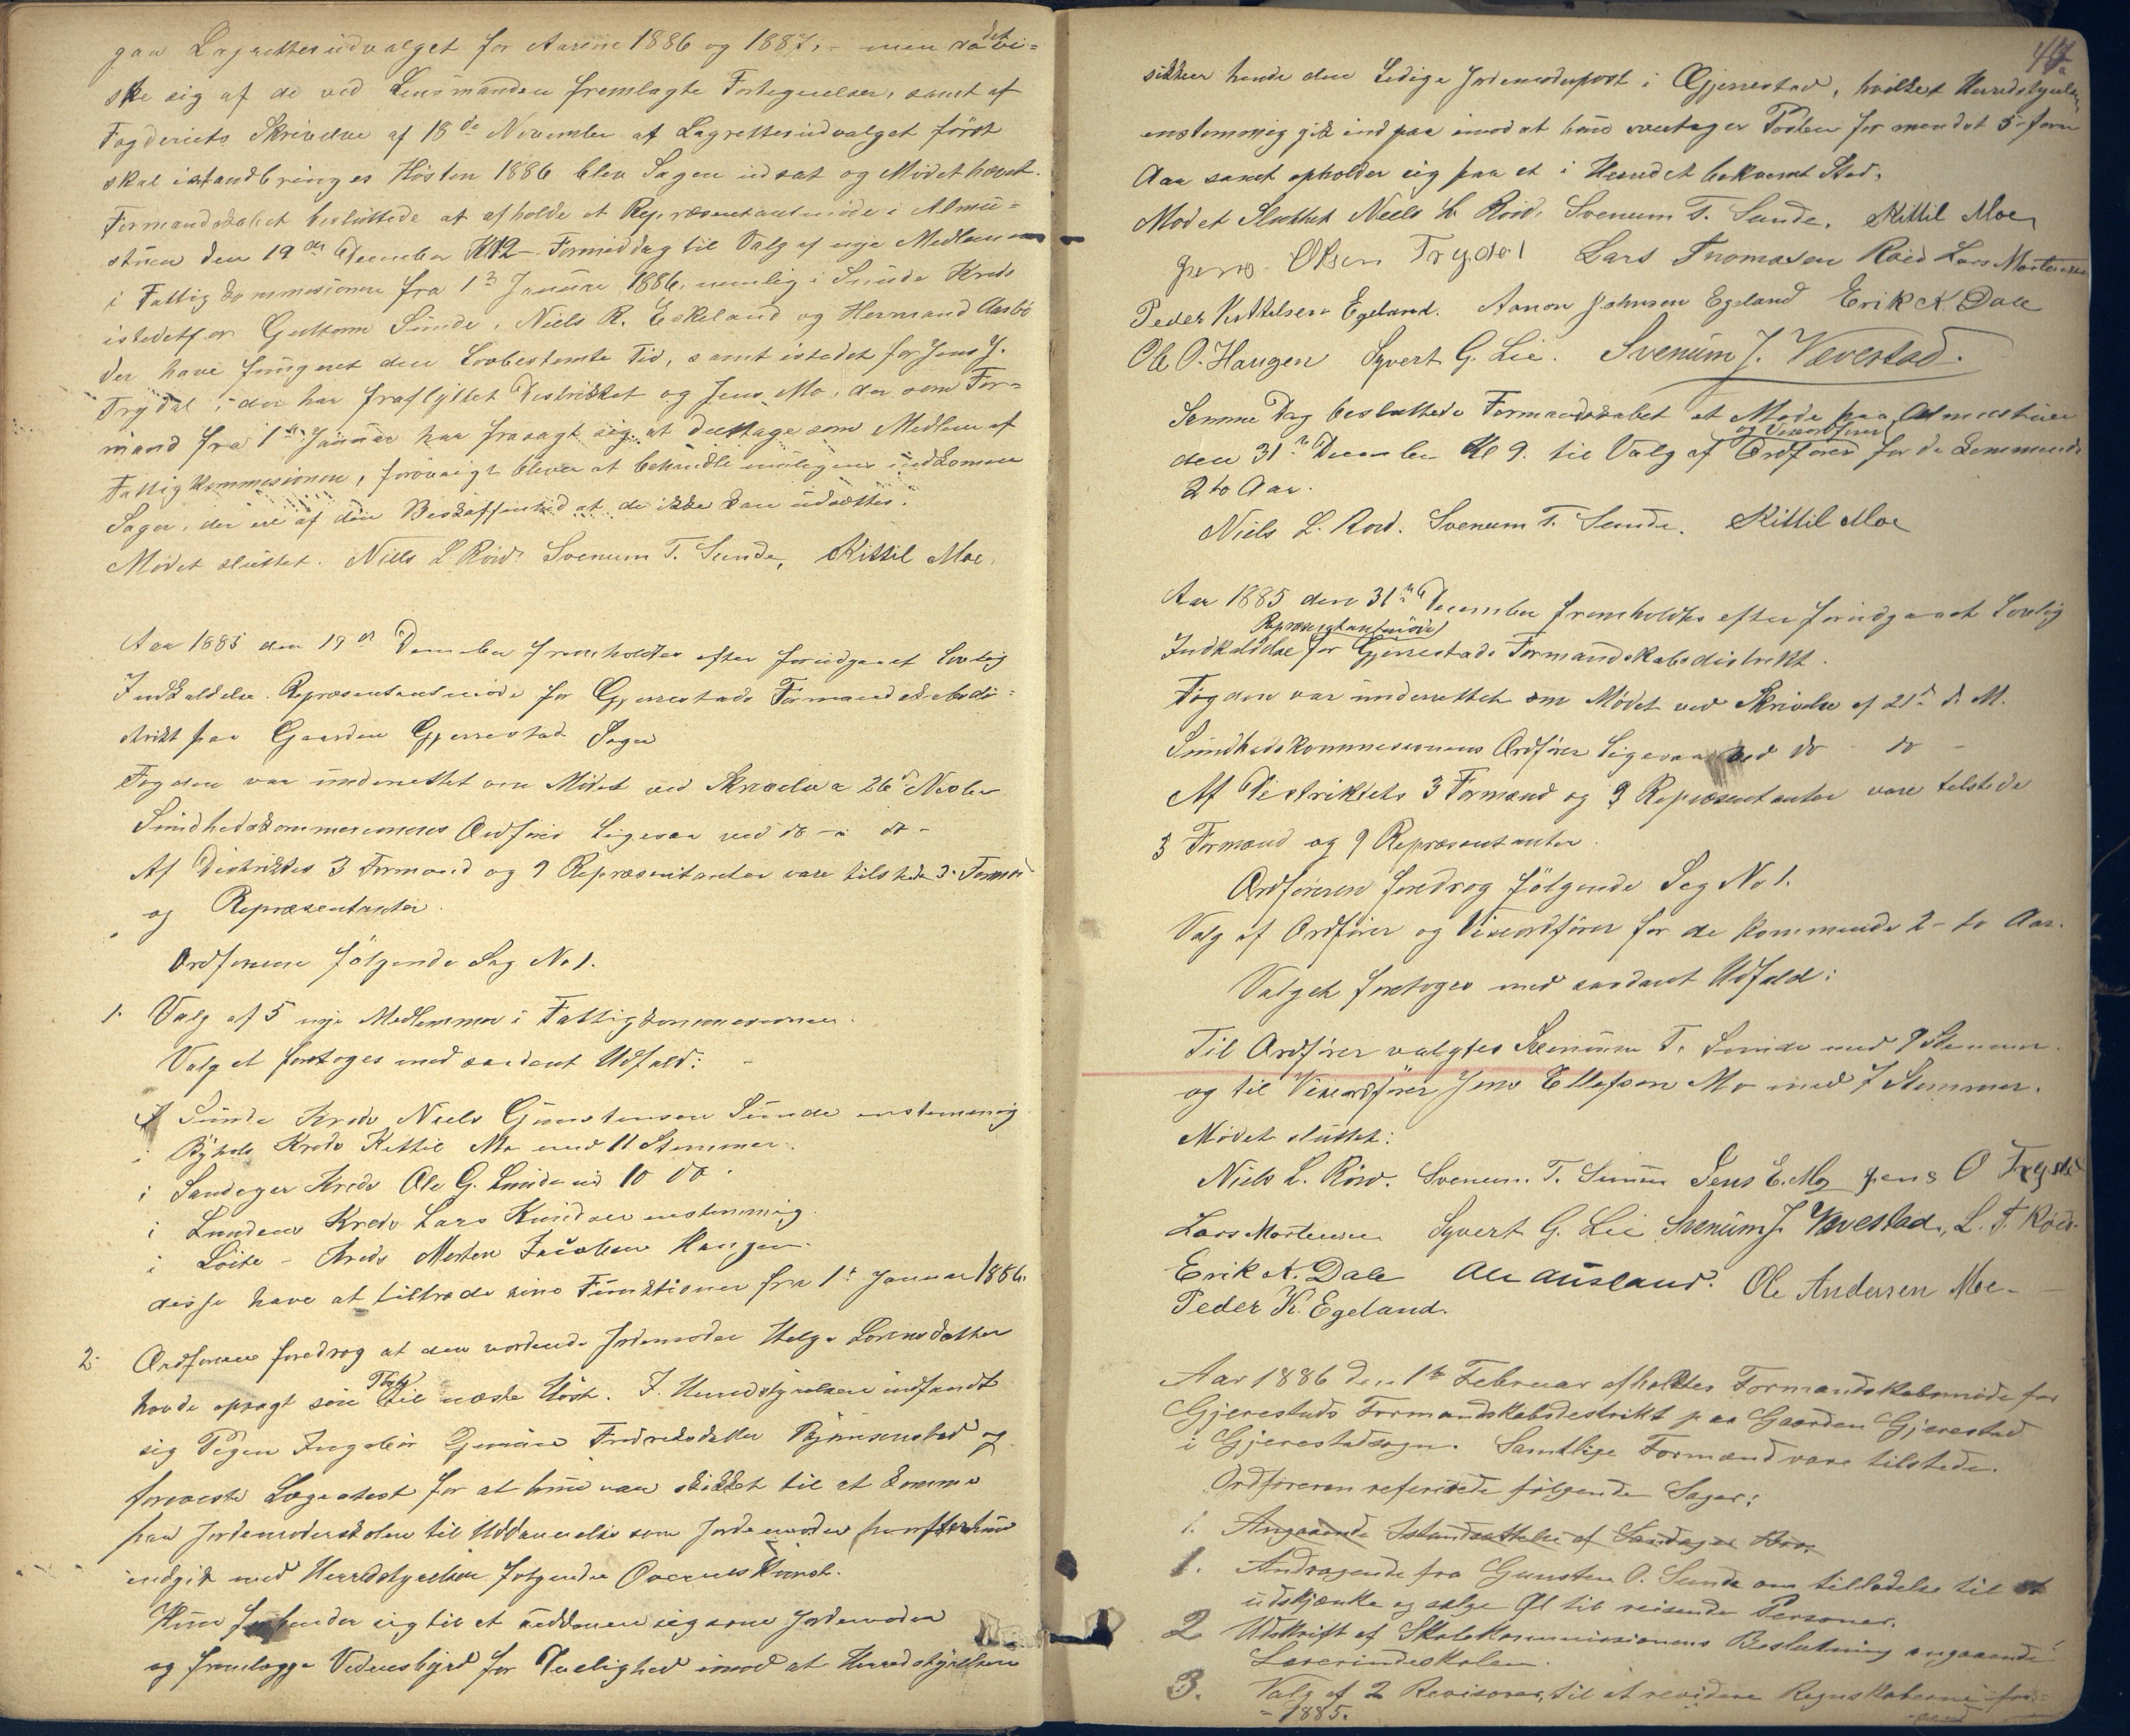 gaa Lagrettesudvalget for Aarene 1886 og 1887, - men da det vi=
ste sig af de ved Lensmanden fremlagte Fortegnelser, samt af
Fogderiets Skrivelse af 18de November at Lagrettesudvalget først
skal istandbringes Høsten 1886 blev Sagen udsat og Mødet hævet.
Formandskabet besluttede at afholde et Repræsentantmøde i Almu=
stuen den 19de December Kl 12 Formiddag til Valg af nye Medlemmer
i Fattigkommisionen fra 1ste Januar 1886, nemlig i Sunde Kreds
istedetfor Guttorm Sunde, Niels R. Eskeland og Hermand Aasbø
der have fungeret den Lovbestemte Tid, samt istedet for Jens J.
Trydal, der har fraflyttet Distriktet og Jens Mo, der som For=
mand fra 1ste Januar har frasagt sig at deeltage som Medlem af
Fattigkommisionen, forøvrigt bliver at behandle muligens indkomne
Sager, der ere af den Beskaffenhed at de ikke kan udsættes.
Mødet sluttet. Niels L Röid. Svenum T. Sunde, Kittil Moe.
Aar 1885 den 19de December fremholdtes efter forudgaaet lovlig
Indkaldelse Repræsentantmøde for Gjerrestads Formandskabsdi=
strikt paa Gaarden Gjerrestad Sogn
Fogden var underrettet om Mødet ved Skrivelse a 26de Novbr
Sundhedskommisionens Ordfører ligesaa ved do - a do -
Af Distriktes 3 Formænd og 9 Repræsentanter vare tilstede 3 Formænd
og Repræsentanter.
Ordføreren følgende Sag No 1.
1. Valg af 5 nye Medlemmer i Fattigkommisionen.
Valget foretoges med saadant Udfald: -
I Sunde Kreds Niels Gunstensen Sunde enstemmig
i Byholt Kreds Kittil Mo med 11 Stemmer.
i Sandager Kreds Ole G. Sunde med 10 do.
i Lunden Kreds Lars Knudsen enstemmig.
i Løite - Kreds Morten Jacobsen Haugen.
disse have at tiltræde sine Funktioner fra 1ste Januar 1886.
2. Ordføreren foredrog at den vordende Jordemoder Helge Lorensdatter
havde opsagt sin Post til næste Høst. I Herredstyrelsen indfandt
sig Pigen Ingebor Gunäre Fredriksdatter Bjørnsenstad og
foreviste Lægeatest for at hun var skikket til at komme
paa Jordemoderskolen til Uddannelse som Jordemoder hvorefter hun
indgik med Herredstyrelsen følgende Overeenskomst.
Hun forbinder sig til at uddanne sig som Jordemoder
og fremlægge Vidnesbyrd for Duelighed imod at Herredstyrelsen
47
sikkrer hende den ledige Jordemoderpost i Gjerrestad, hvilket Herredstyrelsen
enstemmig gik ind paa imod at hun overtager Posten for mindst 5-fem
Aar samt opholder sig paa et i Herredet bekvemt Sted.
Mødet Sluttet Niels L. Röid, Svenum T. Sunde. Kittil Moe,
Jens Olsen Trydal Lars Thomasen Röed Lars Mortensen
Peder Kittelsen Egeland. Aanon Johnsen Egeland Erik K. Dale
Ole O. Haugen Syvert G. Lie. Svenum J. Vævestad.
Samme Dag besluttede Formandskabet et Møde paa Almuestuen
den 31te December Kl 9. til Valg af Ordfører og Viseordfører for de kommende
2 to Aar.
Niels L. Röid. Svenum T. Sunde. Kittil Moe
Aar 1885 den 31te December fremholdtes efter forudgaaet Lovlig
Indkaldelse Repræsentantmøde for Gjerrestads Formandskabsdistrikt.
Fogden var underrettet om Mødet ved Skrivelse af 21de d. M.
Sundhedskommisionens Ordfører ligesaa ved do - do -
Af Distriktets 3 Formænd og 9 Repræsentanter vare tilstede
3 Formænd og 9 Repræsentanter.
Ordføreren foredrog følgende Sag No 1.
Valg af Ordfører og Viseordfører for de kommende 2 - to Aar.
Valget foretoges med saadant Udfald:
Til Ordfører valgtes Svenum T. Sunde med 9 Stemmer.
og til Viseordfører Jens Ellefsen Mo med 7 Stemmer.
Mødet sluttet:
Niels L. Röid. Svenum T. Sunde Jens E. Mo Jens O Trydal
Lars Mortensen Syvert G. Lie Svenum J. Vævestad, L. T. Röed.
Erik K. Dale Ole Ausland. Ole Andersen Moe -
Peder K. Egeland.
Aar 1886 den 1ste Februar afholdtes Formandskabsmøde for
Gjerestads Formandskabsdestrikt paa Gaarden Gjerestad
i Gjerestadsogn. Samtlige Formænd vare tilstede.
Ordføreren refererede følgende Sager:
1. Angaaende Istandsættelse af Sandager Bro.
1. Andragende fra Gunsten O. Sunde om tilladelse til at
udskjænke og sælge Øl til reisende Personer.
2 Udskrift af Skolekommissionens Beslutning angaaende
Lærerindeskolen.
3. Valg af 2 Revisorer, til at revidere Regnskaberne for
- 1885.